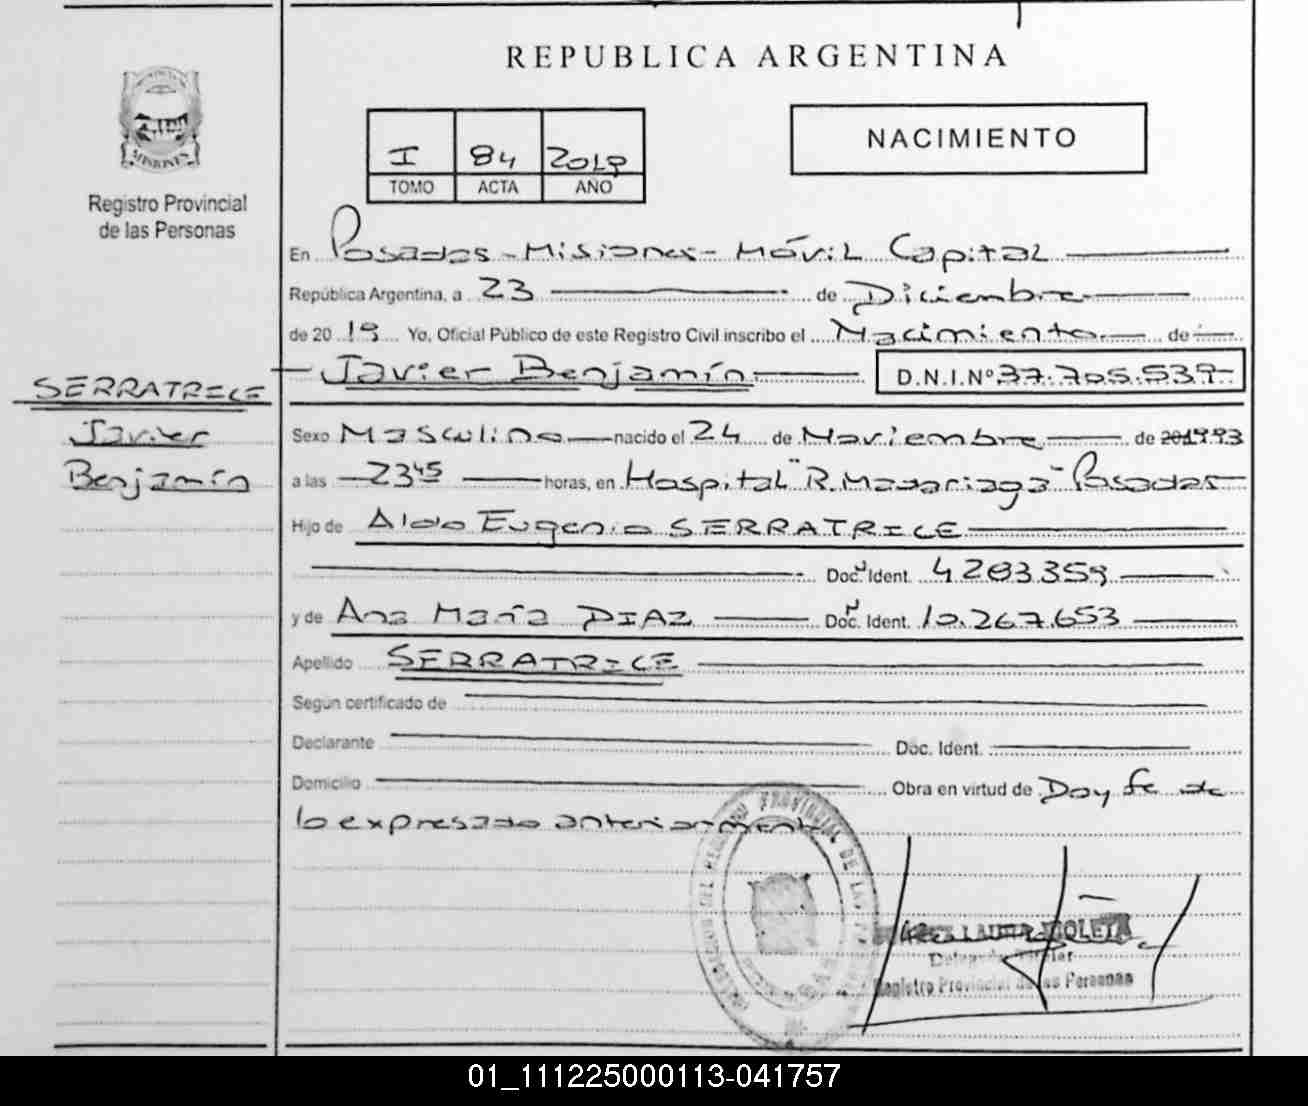 REPUBLICA ARGENTINA
MISIONES
Registro Provincial
de las Personas
I 84 2019
TOMO ACTA AÑO
NACIMIENTO
En Posadas - Misiones - Móvil Capital
República Argentina, a 23 de Diciembre
de 2019 Yo, Oficial Público de este Registro Civil inscribo el Nacimiento de
Javier Benjamín D.N.I.Nº 37.705.539
SERRATRICE
Javier
Benjamín
Sexo Masculino nacido el 24 de Noviembre de 1993
a las 23 45 horas, en Hospital "R. Madariaga" Posadas
Hijo de Aldo Eugenio SERRATRICE
Doc. Ident. 4203359
y de Ana María DIAZ Doc. Ident. 10.267.653
Apellido SERRATRICE
Según certificado de
Declarante Doc. Ident.
Domicilio Obra en virtud de Doy fe de
lo expresado anteriormente
LAURA VIOLETA
Registro Provincial de las Personas
01_111225000113-041757